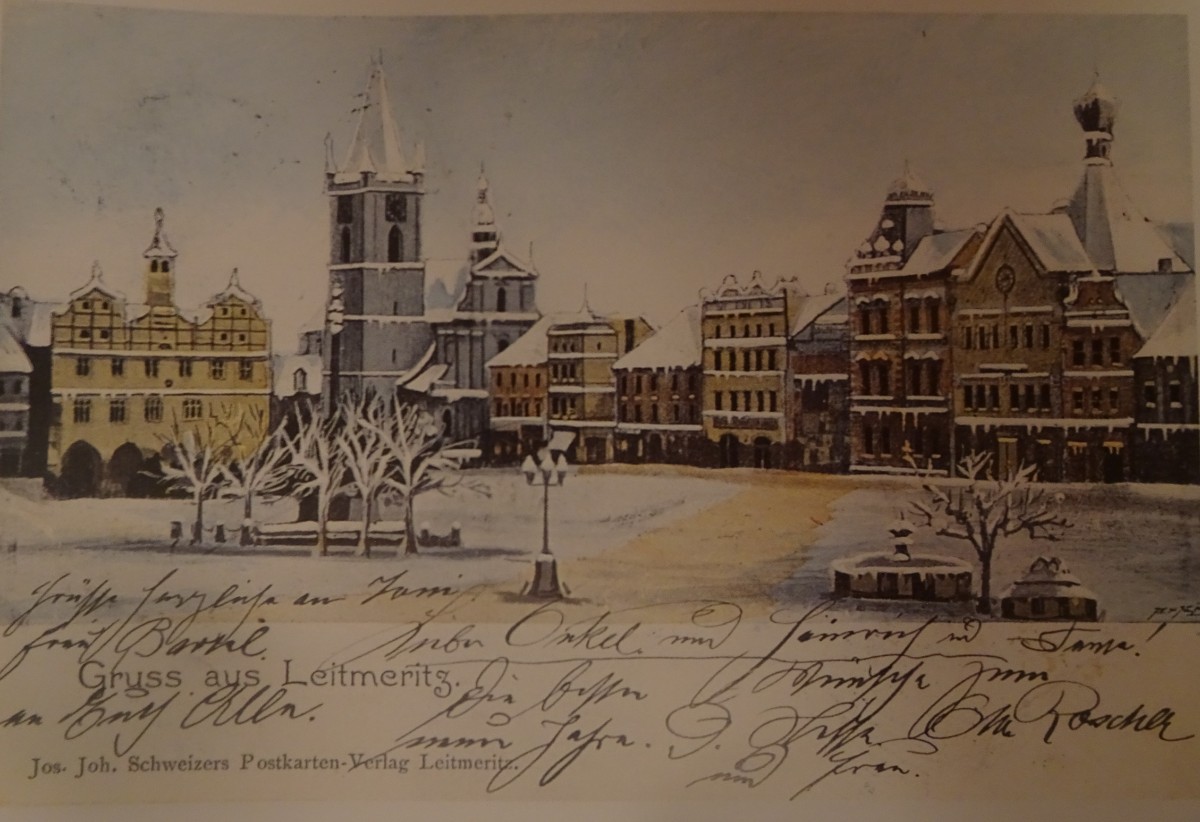 Grüsse herzliche an Toni
Frau Bartel.
Lieber Onkel und Heinrich und Tante!
Gruss aus Leitmeritz.
Die besten Wünsche zum
an Euch Alle.
neuen Jahre.
Roscher
und Frau.
Jos. Joh. Schweizers Postkarten-Verlag Leitmeritz.